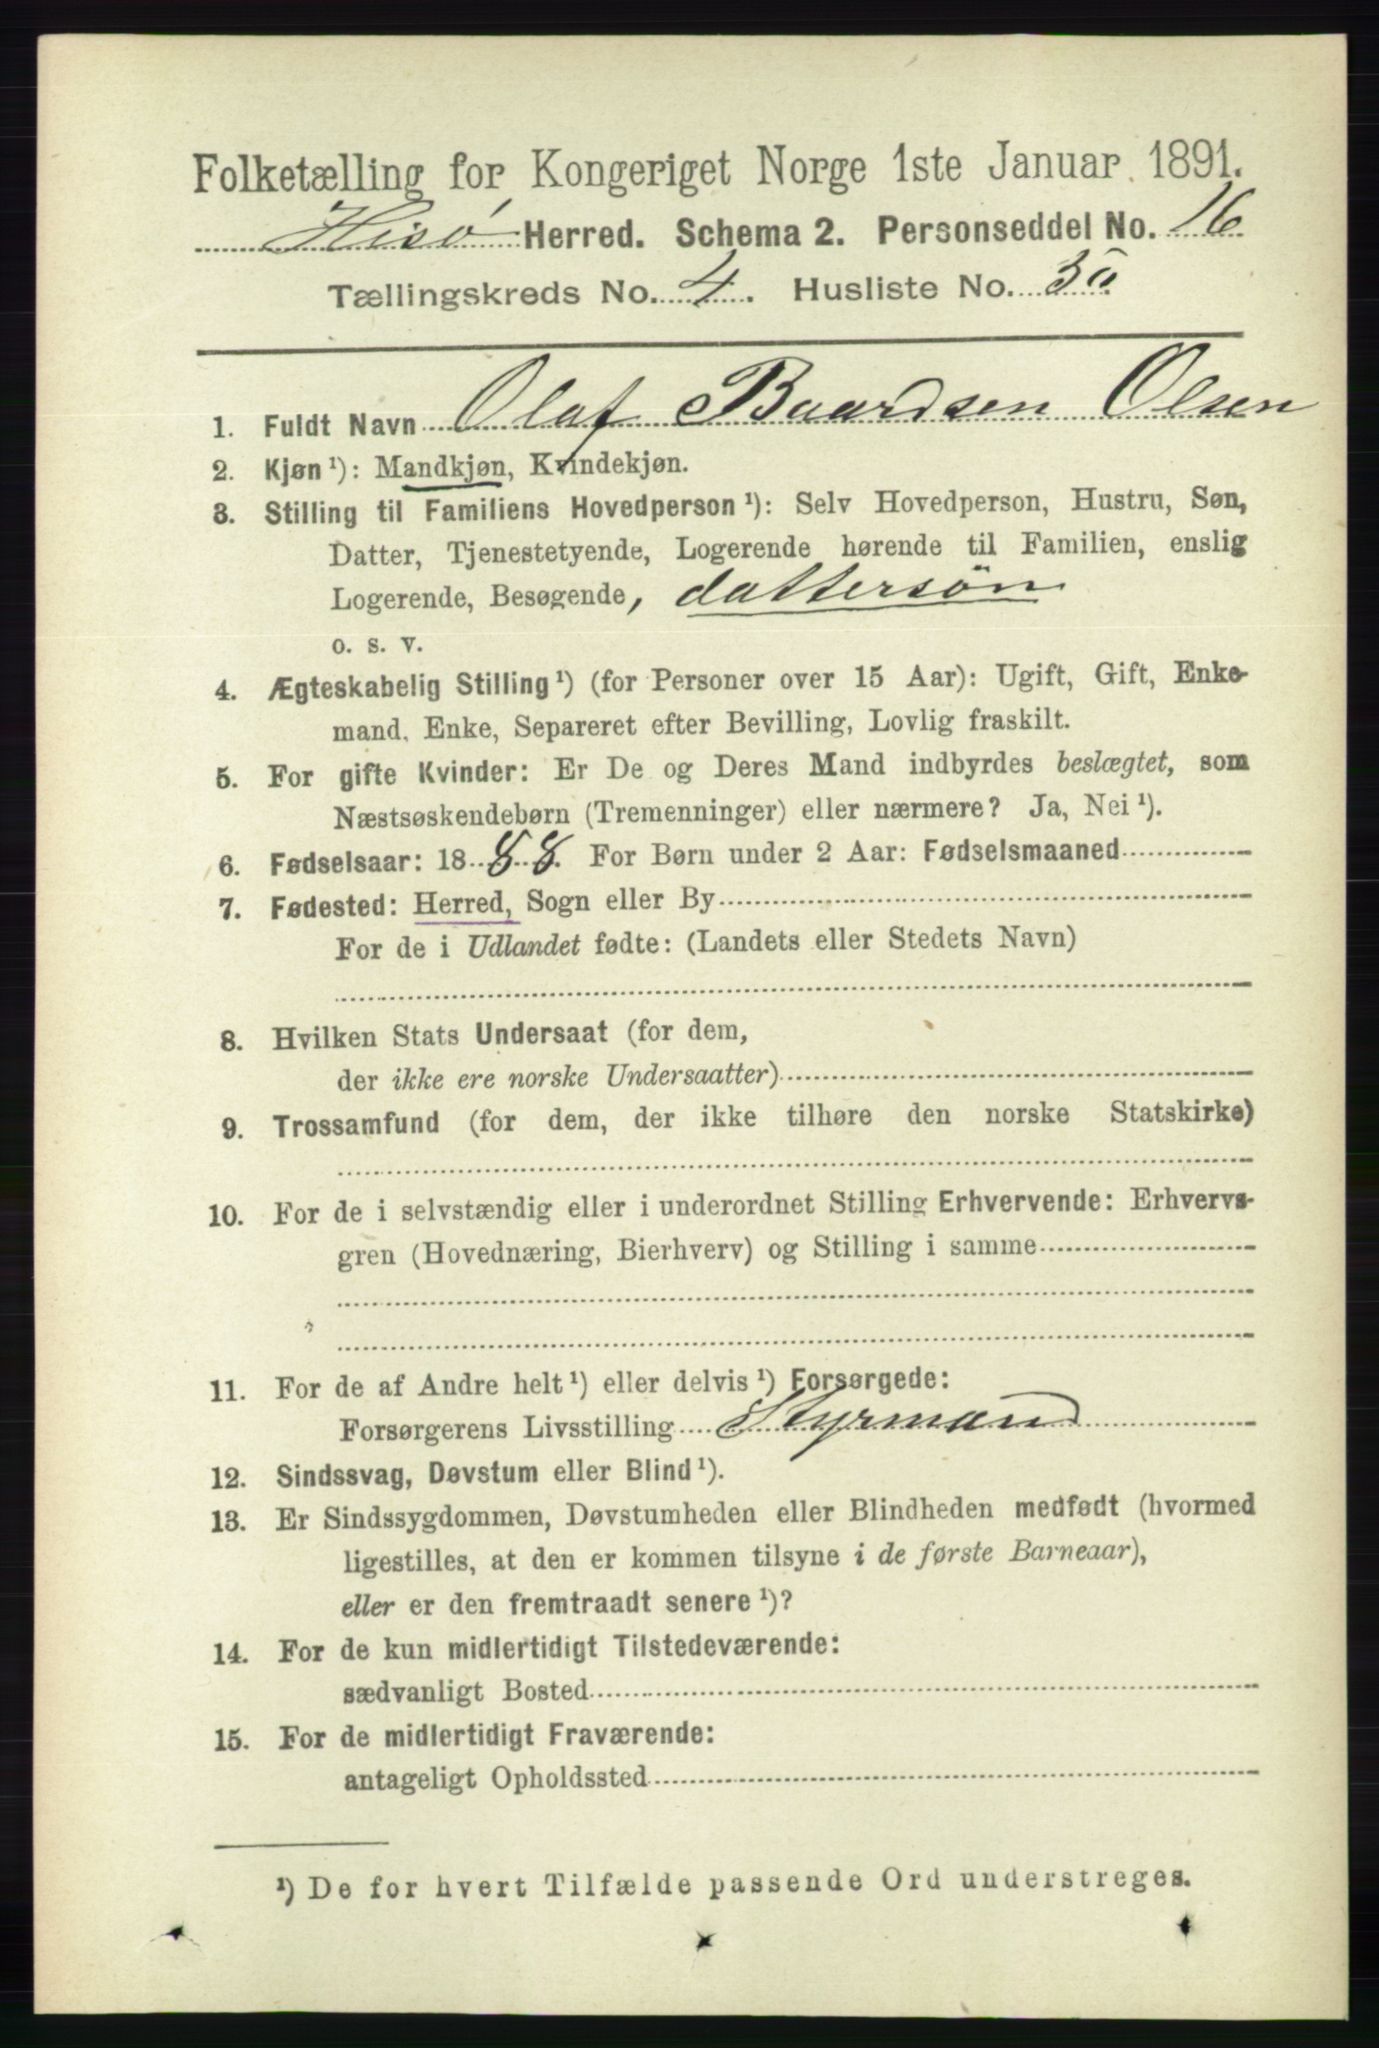 Folketælling for Kongeriget Norge 1ste Januar 1891.
Hisø Herred. Schema 2. Personseddel No. 16
Tællingskreds No. 4. Husliste No. 30
1. Fuldt Navn Olaf Baardsen Olsen
2. Kjøn ¹): Mandkjøn, Kvindekjøn.
3. Stilling til Familiens Hovedperson ¹): Selv Hovedperson, Hustru, Søn,
Datter, Tjenestetyende, Logerende hørende til Familien, enslig
Logerende, Besøgende, dattersøn
o. s. v.
4. Ægteskabelig Stilling ¹) (for Personer over 15 Aar): Ugift, Gift, Enke-
mand, Enke, Separeret efter Bevilling, Lovlig fraskilt.
5. For gifte Kvinder: Er De og Deres Mand indbyrdes beslægtet, som
Næstsøskendebørn (Tremenninger) eller nærmere? Ja, Nei ¹).
6. Fødselsaar: 1888. For Børn under 2 Aar: Fødselsmaaned
7. Fødested: Herred, Sogn eller By
For de i Udlandet fødte: (Landets eller Stedets Navn)
8. Hvilken Stats Undersaat (for dem,
der ikke ere norske Undersaatter)
9. Trossamfund (for dem, der ikke tilhøre den norske Statskirke)
10. For de i selvstændig eller i underordnet Stilling Erhvervende: Erhvervs-
gren (Hovednæring, Bierhverv) og Stilling i samme
11. For de af Andre helt ¹) eller delvis ¹) Forsørgede:
Forsørgerens Livsstilling Styrmand
12. Sindssvag, Døvstum eller Blind ¹).
13. Er Sindssygdommen, Døvstumheden eller Blindheden medfødt (hvormed
ligestilles, at den er kommen tilsyne i de første Barneaar),
eller er den fremtraadt senere ¹)?
14. For de kun midlertidigt Tilstedeværende:
sædvanligt Bosted
15. For de midlertidigt Fraværende:
antageligt Opholdssted
¹) De for hvert Tilfælde passende Ord understreges.